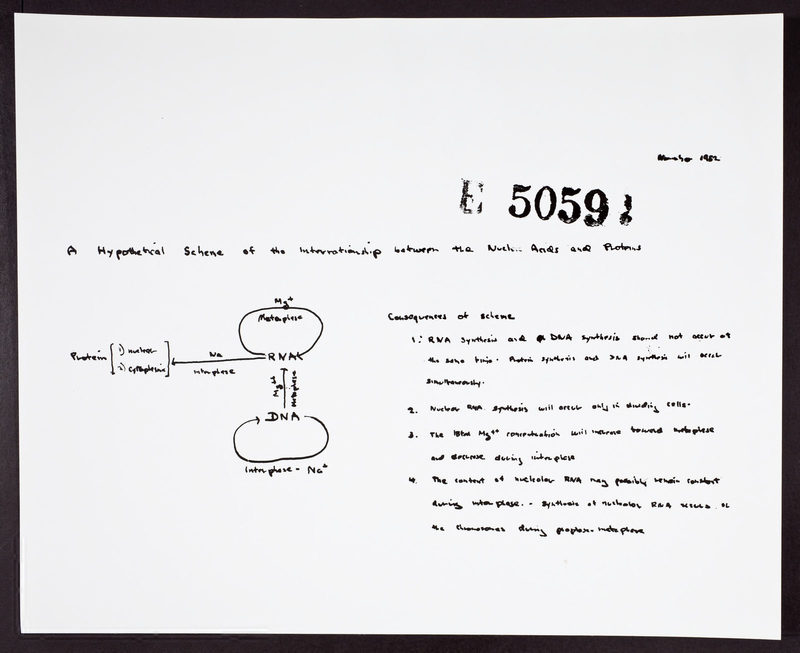 March 1952
E 5059
A Hypothetical Scheme of the Interrationship between the Nucleic Acids and Proteins
Mg+
Metaphase
Consequences of scheme
Protein [ 1) nuclear
2) cytoplasmic ]
Na
Interphase
RNA
Mg++
Metaphase
DNA
Interphase - Na+
1. RNA synthesis and DNA synthesis should not occur at
the same time. Protein synthesis and DNA synthesis will occur
simultaneously.
2. Nuclear RNA synthesis will occur only in dividing cells.
3. The Mg++ concentration will increase toward metaphase
and decrease during interphase
4. The content of nucleolar RNA may possibly remain constant
during interphase. - Synthesis of nucleolar RNA
the chromosomes during prophase-metaphase